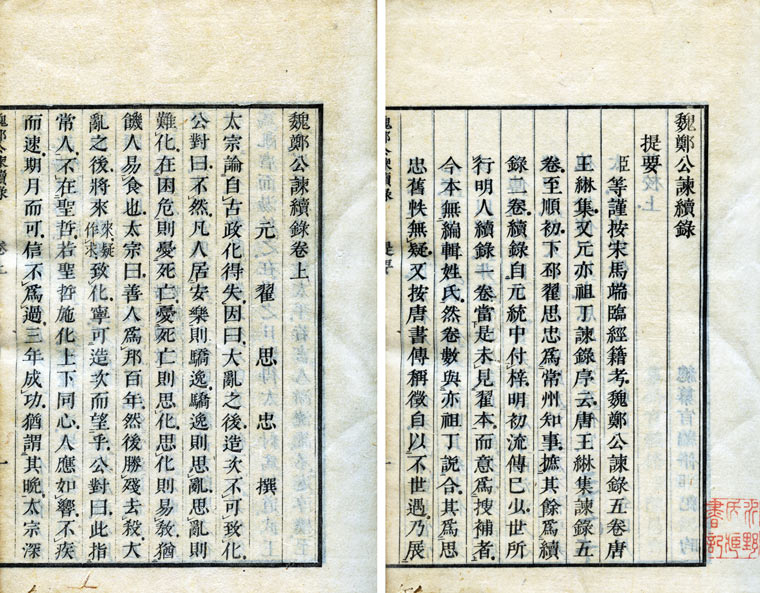 魏鄭公諫續錄
提要
臣等謹按宋馬端臨經籍考魏鄭公諫錄五卷唐
王綝集又元亦祖丁諫錄序云唐王綝集諫錄五
卷至順初下邳翟思忠爲常州知事摭其餘爲續
錄二卷續錄自元統中付梓明初流傳已少世所
行明人續錄一卷當是未見翟本而意爲搜補者
今本無編輯姓氏然卷數與亦祖丁說合其爲思
忠舊帙無疑又按唐書傳稱徵自以不世遇乃展
魏鄭公諫續錄 提要
魏鄭公諫續錄卷上
元 翟思忠 撰
太宗論自古政化得失因曰大亂之後造次不可致化
公對曰不然凡人居安樂則驕逸驕逸則思亂思亂則
難化在困危則憂死亡憂死亡則思化思化則易敎猶
饑人易食也太宗曰善人爲邦百年然後勝殘去殺大
亂之後將來來疑作求致化寧可造次而望乎公對曰此指
常人不在聖哲若聖哲施化上下同心人應如響不疾
而速期月而可信不爲過三年成功猶謂其晚太宗深
魏鄭公諫續錄 卷上 一